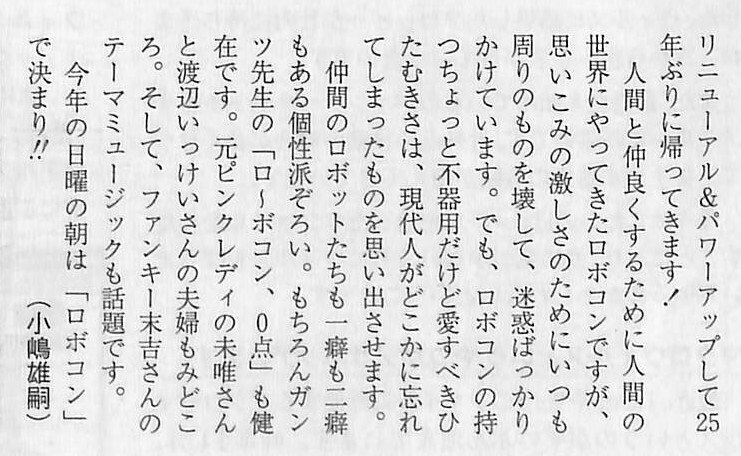 リニューアル&パワーアップして25
年ぶりに帰ってきます！
　人間と仲良くするために人間の
世界にやってきたロボコンですが、
思いこみの激しさのためにいつも
周りのものを壊して、迷惑ばっかり
かけています。でも、ロボコンの持
つちょっと不器用だけど愛すべきひ
たむきさは、現代人がどこかに忘れ
てしまったものを思い出させます。
　仲間のロボットたちも一癖も二癖
もある個性派ぞろい。もちろんガン
ツ先生の「ロ～ボコン、０点」も健
在です。元ピンクレディの未唯さん
と渡辺いっけいさんの夫婦もみどこ
ろ。そして、ファンキー末吉さんの
テーマミュージックも話題です。
　今年の日曜の朝は「ロボコン」
で決まり!!
（小嶋雄嗣）